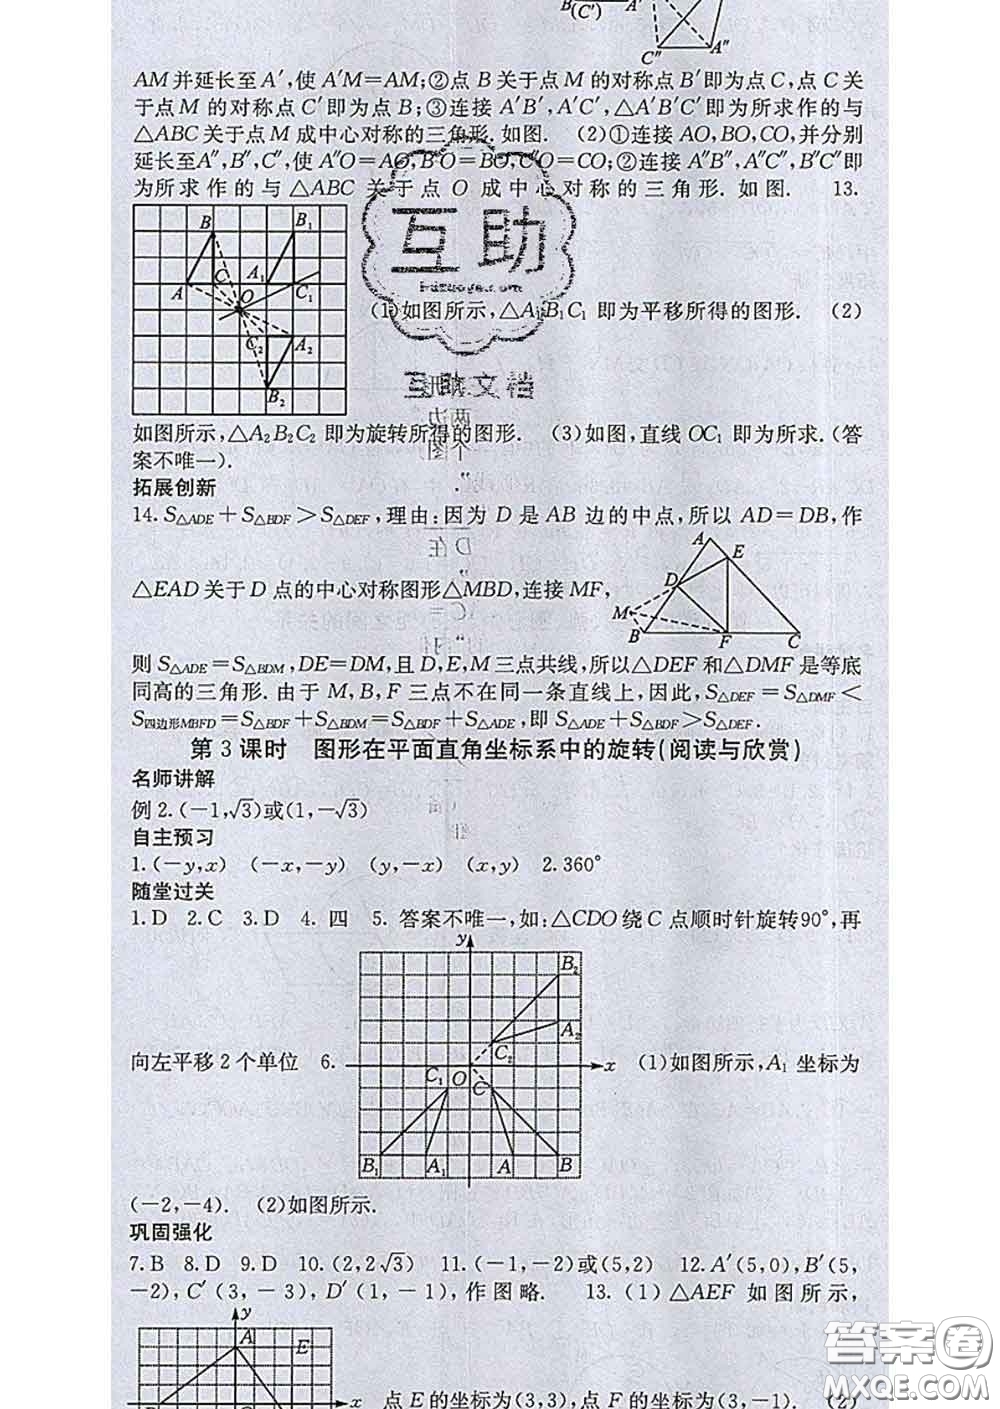 B(C′) A′
C″ A″
AM并延长至A′,使A′M=AM;②点B关于点M的对称点B′即为点C,点C关
于点M的对称点C′即为点B;③连接A′B′,A′C′,△A′B′C′即为所求作的与
△ABC关于点M成中心对称的三角形.如图. (2)①连接AO,BO,CO,并分别
延长至A″,B″,C″,使A″O=AO,B″O=BO,C″O=CO;②连接A″B″,A″C″,B″C″即
为所求作的与△ABC关于点O成中心对称的三角形.如图. 13.
B B₁
A C O A₁ C₁
C₂ A₂
B₂
互助
(1)如图所示,△A₁B₁C₁即为平移所得的图形. (2)
如图所示,△A₂B₂C₂即为旋转所得的图形. (3)如图,直线OC₁即为所求.(答
案不唯一).
拓展创新
14.S△ADE+S△BDF>S△DEF,理由:因为D是AB边的中点,所以AD=DB,作
△EAD关于D点的中心对称图形△MBD,连接MF,
A E D M B F C
则S△ADE=S△BDM,DE=DM,且D,E,M三点共线,所以△DEF和△DMF是等底
同高的三角形.由于M,B,F三点不在同一条直线上,因此,S△DEF=S△DMF<
S四边形MBFD=S△BDF+S△BDM=S△BDF+S△ADE,即S△ADE+S△BDF>S△DEF.
第3课时 图形在平面直角坐标系中的旋转(阅读与欣赏)
名师讲解
例2.(-1,√3)或(1,-√3)
自主预习
1.(-y,x) (-x,-y) (y,-x) (x,y) 2.360°
随堂过关
1.D 2.C 3.D 4.四 5.答案不唯一,如:△CDO绕C点顺时针旋转90°,再
向左平移2个单位 6.
y B₂ A₂ C₂ x
C₁ O C
B₁ A₁ A B
(1)如图所示,A₁坐标为
(-2,-4). (2)如图所示.
巩固强化
7.B 8.D 9.D 10.(2,2√3) 11.(-1,-2)或(5,2) 12.A′(5,0),B′(5,
-2),C′(3,-3),D′(1,-1),作图略. 13.(1)△AEF如图所示,
y A E x
点E的坐标为(3,3),点F的坐标为(3,-1). (2)
答案圈
MXQE.COM